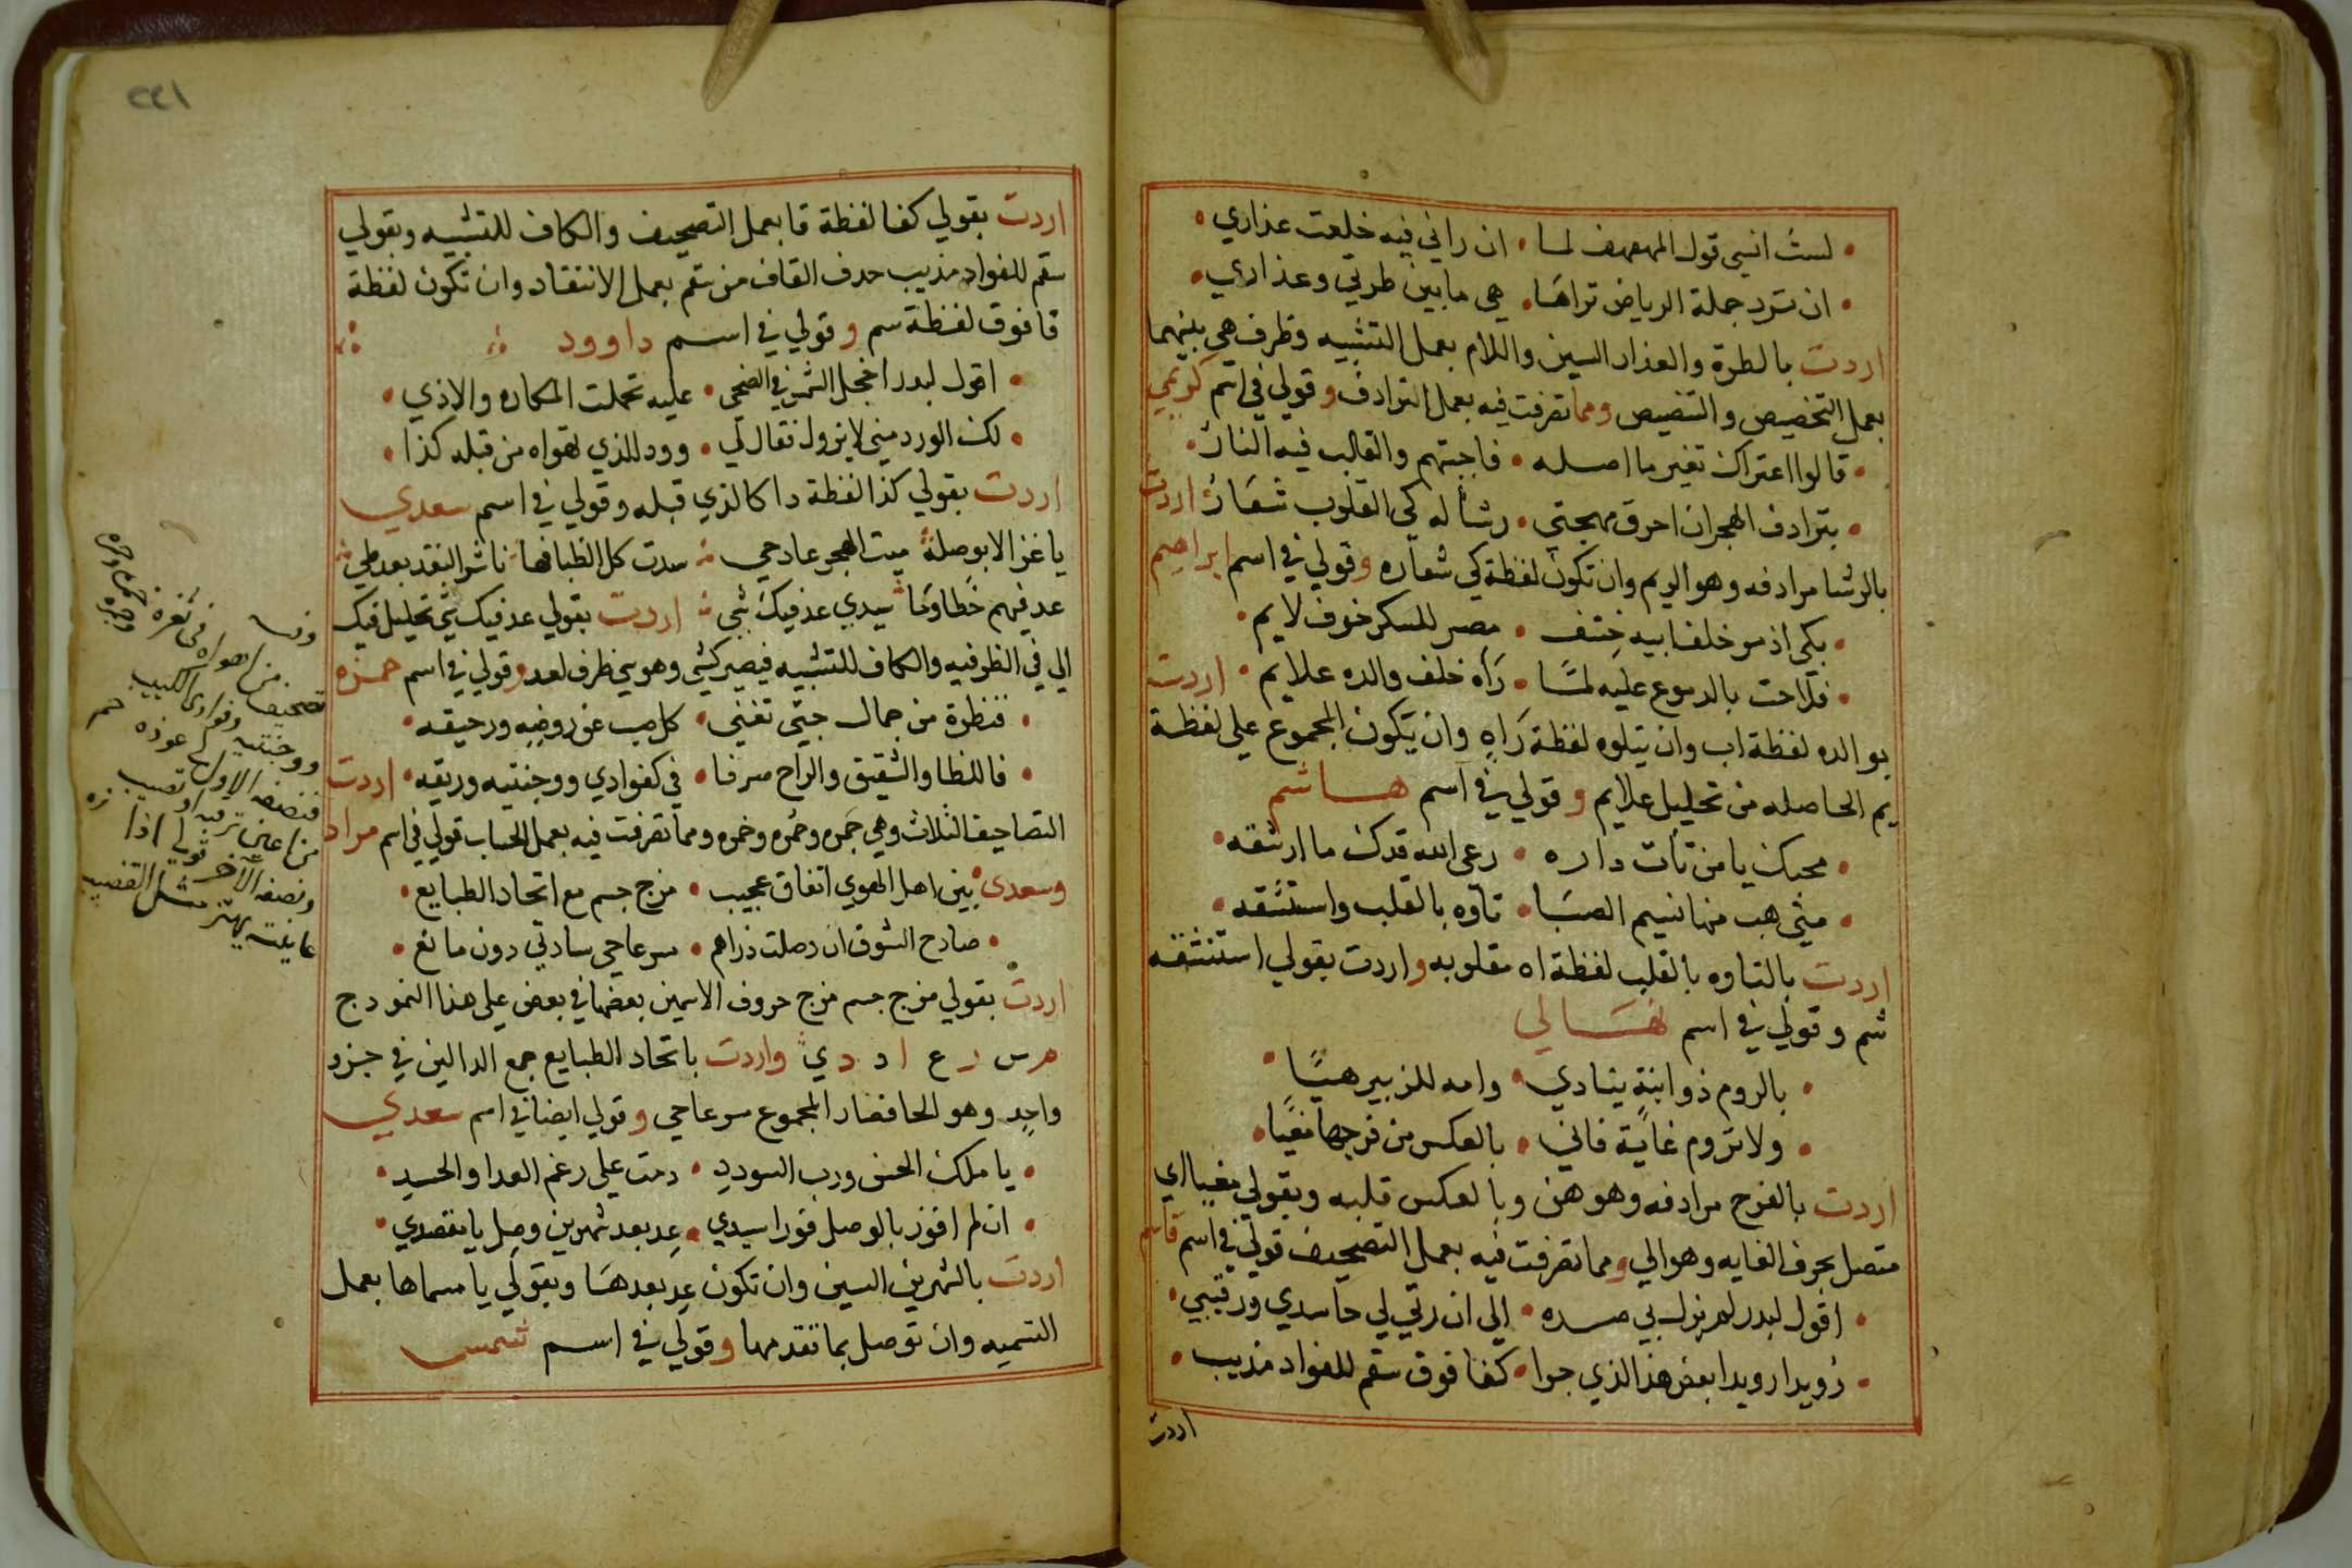 لست انسى قول المهفهف لما • ان راني فيه خلعت عذاري •
• ان ترد جملة الرياض تراها • هي ما بين طرتي وعذاري •
اردت بالطرة والعذار السين واللام بعمل التشبيه وظرف هي بينهما
بعمل التخصيص والتنصيص ومما تصرفت فيه بعمل الترادف وقولي في اسم كريمي
• قالوا اعتراك تغير ما اصله • فاجبتهم والقالب فيه النار •
• بترادف الهجران احرق مهجتي • رشأ له كي القلوب شعار اردت
بالرشا مرادفه وهو الريم وان تكون لفظة كي شعاره وقولي في اسم ابراهيم
• بكى اذ سو خلف ابيه خشف • مصر للسكر خوف لايم •
• فلاحت بالدموع عليه لما • راه خلف والده علايم • اردت
بوالده لفظة اب وان يتلوه لفظة راه وان يكون المجموع على لفظة
يم الحاصله من تحليل علايم وقولي في اسم هاشم
• محبك يا من تأت داره • رعى الله قدك ما ارشقه •
• متى هب منها نسيم الصبا • تاوه بالقلب واستنشقه •
اردت بالتاوه بالقلب لفظة اه مقلوبه واردت بقولي استنشقه
شم وقولي في اسم نهالي
• بالروم ذو ابنة ينادي • وامه للزبير هيا •
• ولا تروم غاية فاني • بالعكس من فرجها مغيا •
اردت بالفرج مرادفه وهو هن وبالعكس قلبه وبقولي مغيا اي
متصل بحرف الغايه وهو الي ومما تصرفت فيه بعمل التصحيف قولي في اسم قاسم
• اقول لبدر لم يزل بي صده • الى ان رثى لي حاسدي ورقيبي •
• رويدا رويدا بعض هذا الذي جرا • كفا فوق سقم للفواد مذيب •
اردت
٢٤١
اردت بقولي كفا لفظة قا بعمل التصحيف والكاف للتشبيه وبقولي
سقم للفواد مذيب حذف القاف من سقم بعمل الانتقاد وان تكون لفظة
قا فوق لفظة سم وقولي في اسم داوود
• اقول لبدر اخجل الشمس في الضحى • عليه تحملت المكاره والاذي •
• لك الورد مني لا يزول فقال لي • وود للذي تهواه من قبله كذا •
اردت بقولي كذا لفظة دا كالذي قبله وقولي في اسم سعدي
يا غزالا بوصله ميت الهجر عاد حي سدت كل الظبا فها ناشر البقد بعد طي
عد فيهم خطاوها سيدي عد فيك شي اردت بقولي عد فيك شي تحليل فيك
الي في الظرفيه والكاف للتشبيه فيصير كشي وهو يي ظرف لعد وقولي في اسم حمزه
• فنظرة من جمال حبي تغني • كل صب عن روضه ورحيقه •
• فاللظا والشقيق والراح صرفا • في كفوادي ووجنتيه وريقه • اردت
التصاحيف الثلاث وهي جمره وحمره وخمره ومما تصرفت فيه بعمل الحساب قولي في اسم مراد
وسعدى • بين اهل الهوي اتفاق عجيب • مزج جسم مع اتحاد الطبايع •
• صادح الشوق ان دصلت ذراهم • سرعا حي سادتي دون مانع •
اردت بقولي مزج جسم مزج حروف الاسمين بعضها في بعض على هذا النمودج
م س ر ع ا د د ي واردت باتحاد الطبايع جمع الدالين في جزو
واحد وهو الحا فصار المجموع سرعا حي وقولي ايضا في اسم سعدي
• يا ملك الحسن ورب السودد • دمت على رغم العدا والحسد •
• ان لم افوز بالوصل فورا سيدي • عد بعد شهرين وصل يا مقصدي •
اردت بالشهرين السين وان تكون عد بعدها وبقولي يا مسماها بعمل
التسميه وان توصل بما تقدمها وقولي في اسم شمسي
من اهواه في ثغره
تصحيف وفوادي الكئيب
ووجنتيه
فنصفه الاول عوذه حم
من اعين ترقبه او تصيب
ونصفه الآخر قولي اذا
عاينته يهتز مثل القضيب